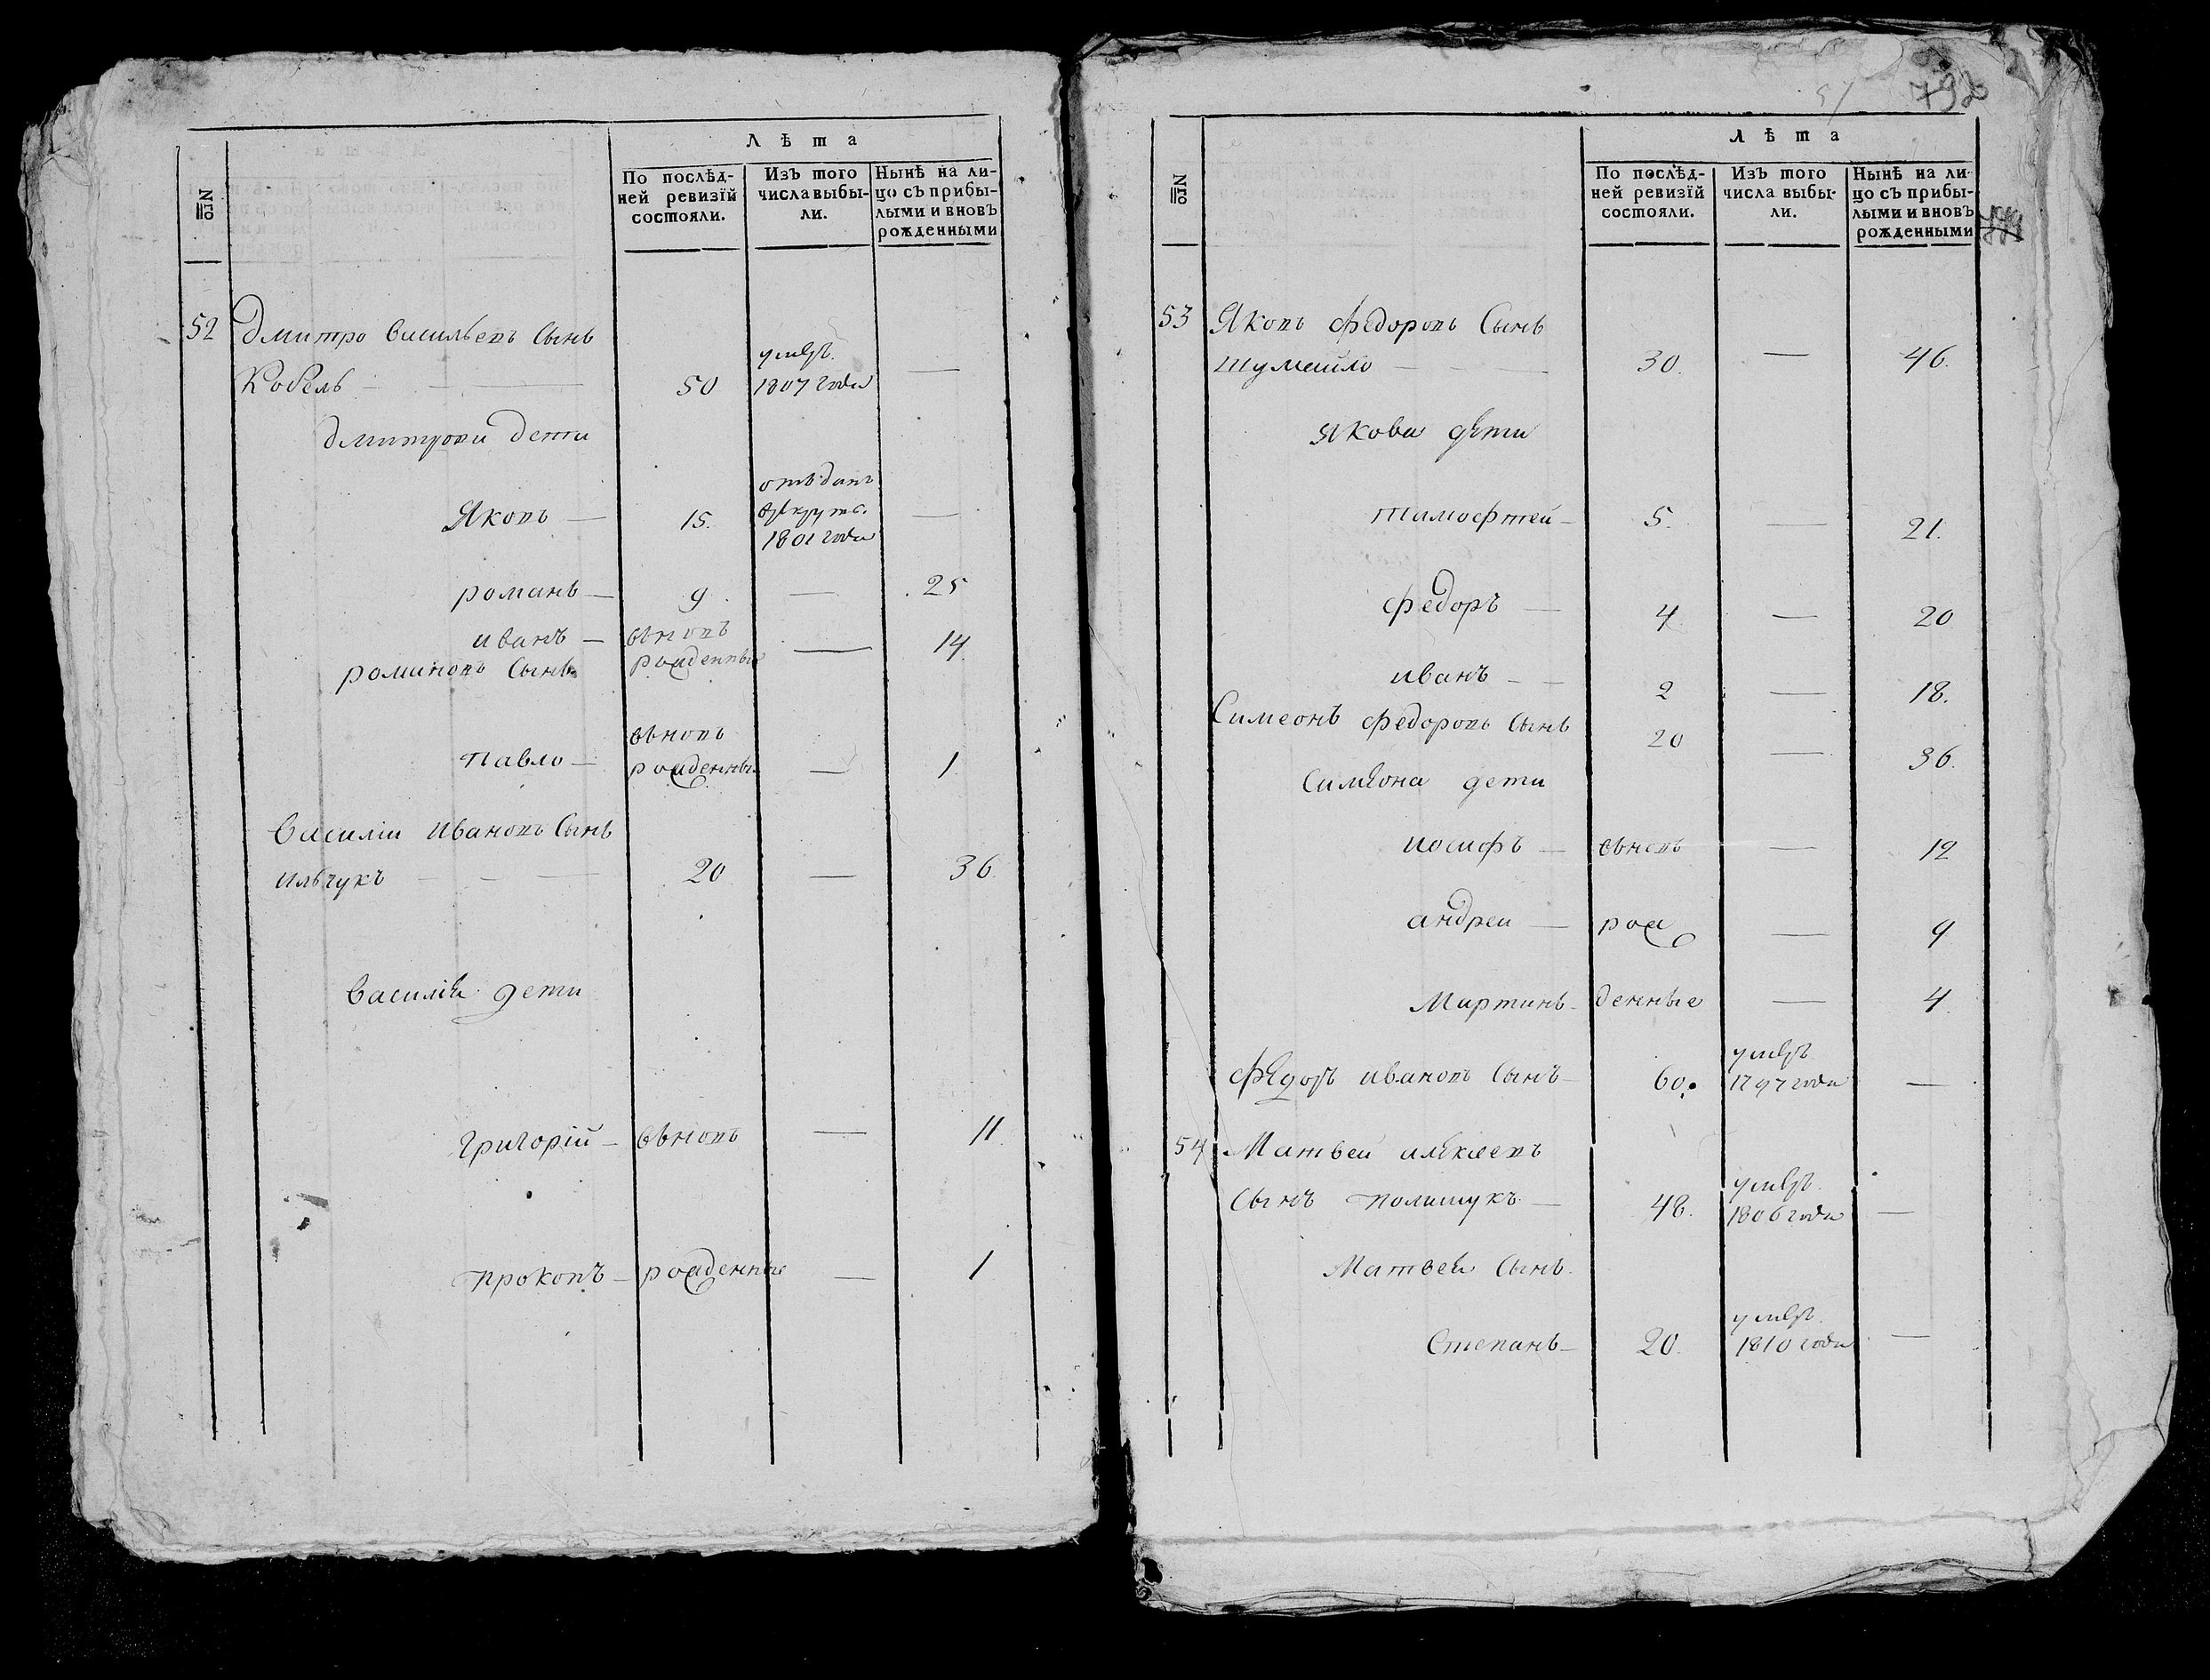 Лѣта
№
По послѣд-
ней ревизїй
состояли.
Изъ того
числа выбы-
ли.
Нынѣ на ли-
цо съ прибы-
лыми и вновь
рожденными
52 Дмитро Васильевъ Сынъ
Кобель — 50 умеръ 1807 года —
Дмитрови дети
Яковъ — 15. отъданъ врекруты 1801 года —
романъ — 9. — 25
иванъ — вьновь
романовъ Сынъ рожденные — 14
павло — вьновь рожденные — 1
Василіи ивановъ Сынъ
ильчукъ — 20 — 36.
Василія дети
григорій — вьновь — 11.
прокопъ — рожденные — 1
792
Лѣта
№
По послѣд-
ней ревизїй
состояли.
Изъ того
числа выбы-
ли.
Нынѣ на ли-
цо съ прибы-
лыми и вновь
рожденными
53 Яковъ Федоровъ Сынъ
шумейло — 30. — 46.
якова дети
тимофтей — 5. — 21.
федоръ — 4 — 20
иванъ — 2 — 18.
Симеонъ федоровъ Сынъ 20 — 36.
Симеона дети
иосифъ — вьновь — 12
андреи — рож — 9
Мартинъ — денные — 4
федоръ ивановъ Сынъ — 60. умеръ 1797 года —
54 Матвеи алексеевъ
Сынъ полищукъ — 48. умеръ 1806 года —
Матвея Сынъ
Степанъ — 20. умеръ 1810 года —